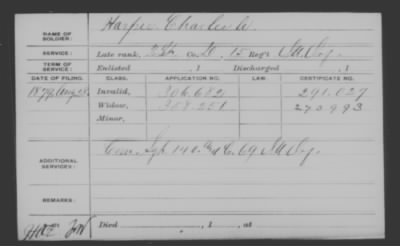 NAME OF SOLDIER: Harper Charlie W.
SERVICE: Late rank, Co. 15 Reg't Ill Inf.
TERM OF SERVICE: Enlisted , 1 Discharged , 1
DATE OF FILING. CLASS. APPLICATION NO. LAW. CERTIFICATE NO.
1879, Aug 28 Invalid, 306.652 291.027
Widow, 308.251 270993
Minor,
ADDITIONAL SERVICES: 69 Ill Inf.
REMARKS:
Died , 1 , at